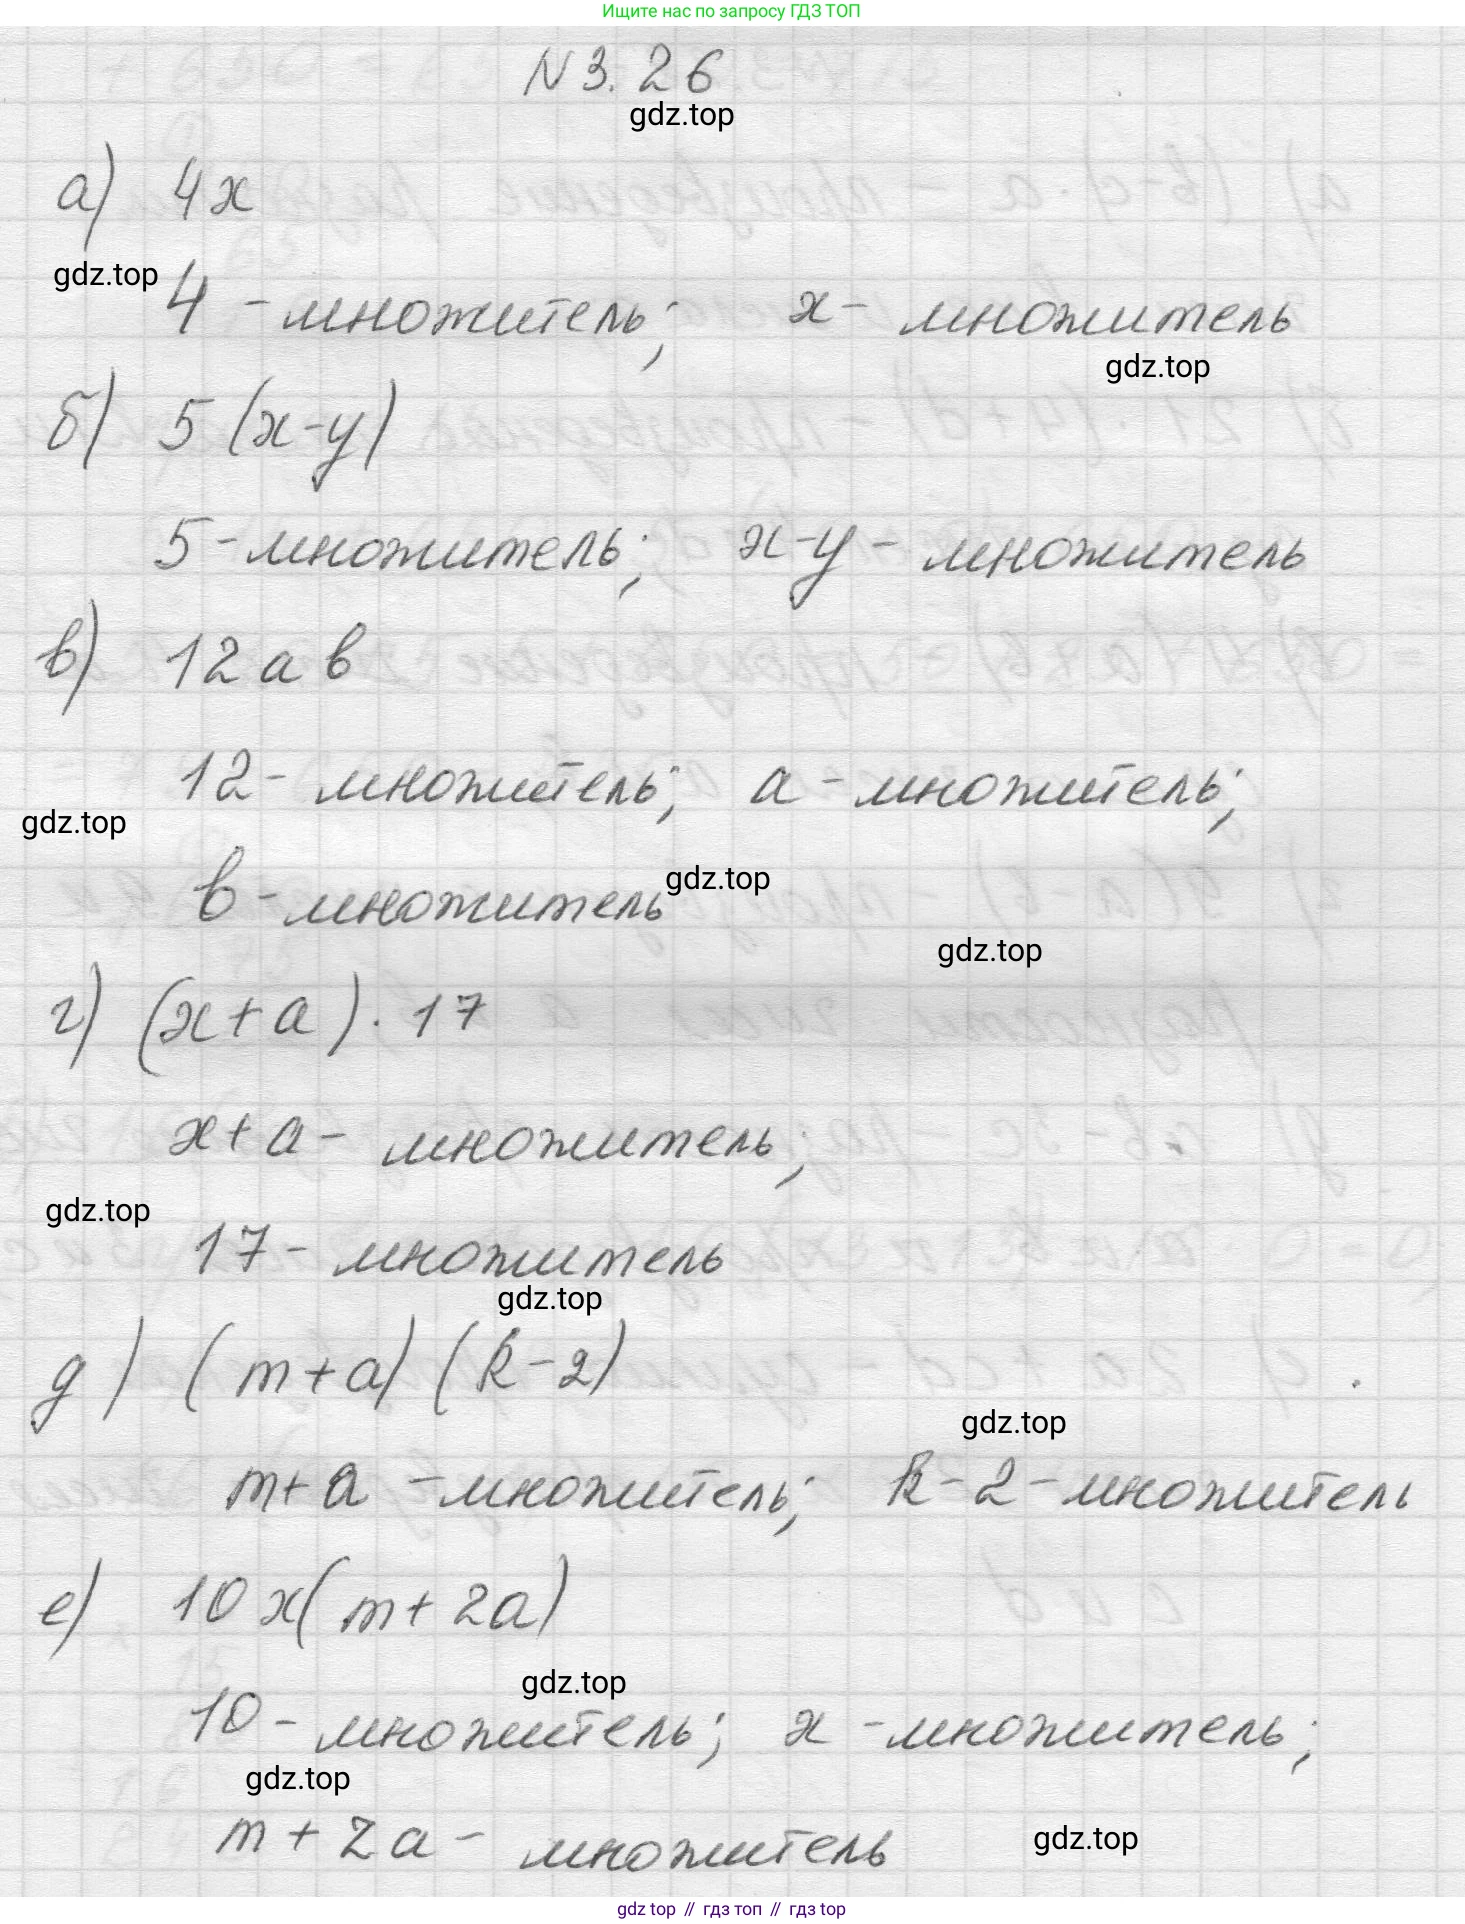 Ищите нас по запросу ГДЗ ТОП
N 3.26
gdz.top
а) 4x
gdz.top
4 - множитель; x - множитель
gdz.top
б) 5 (x-y)
5 - множитель; x-y - множитель
в) 12 a b
12 - множитель; a - множитель;
gdz.top
b - множитель
gdz.top
gdz.top
г) (x+a) · 17
x+a - множитель;
gdz.top
17 - множитель
gdz.top
д) (m+a) (k-2)
gdz.top
m+a - множитель; k-2 - множитель
е) 10 x (m+2a)
gdz.top
10 - множитель; x - множитель;
gdz.top
m+2a - множитель
gdz.top
gdz top // гдз топ // гдз top